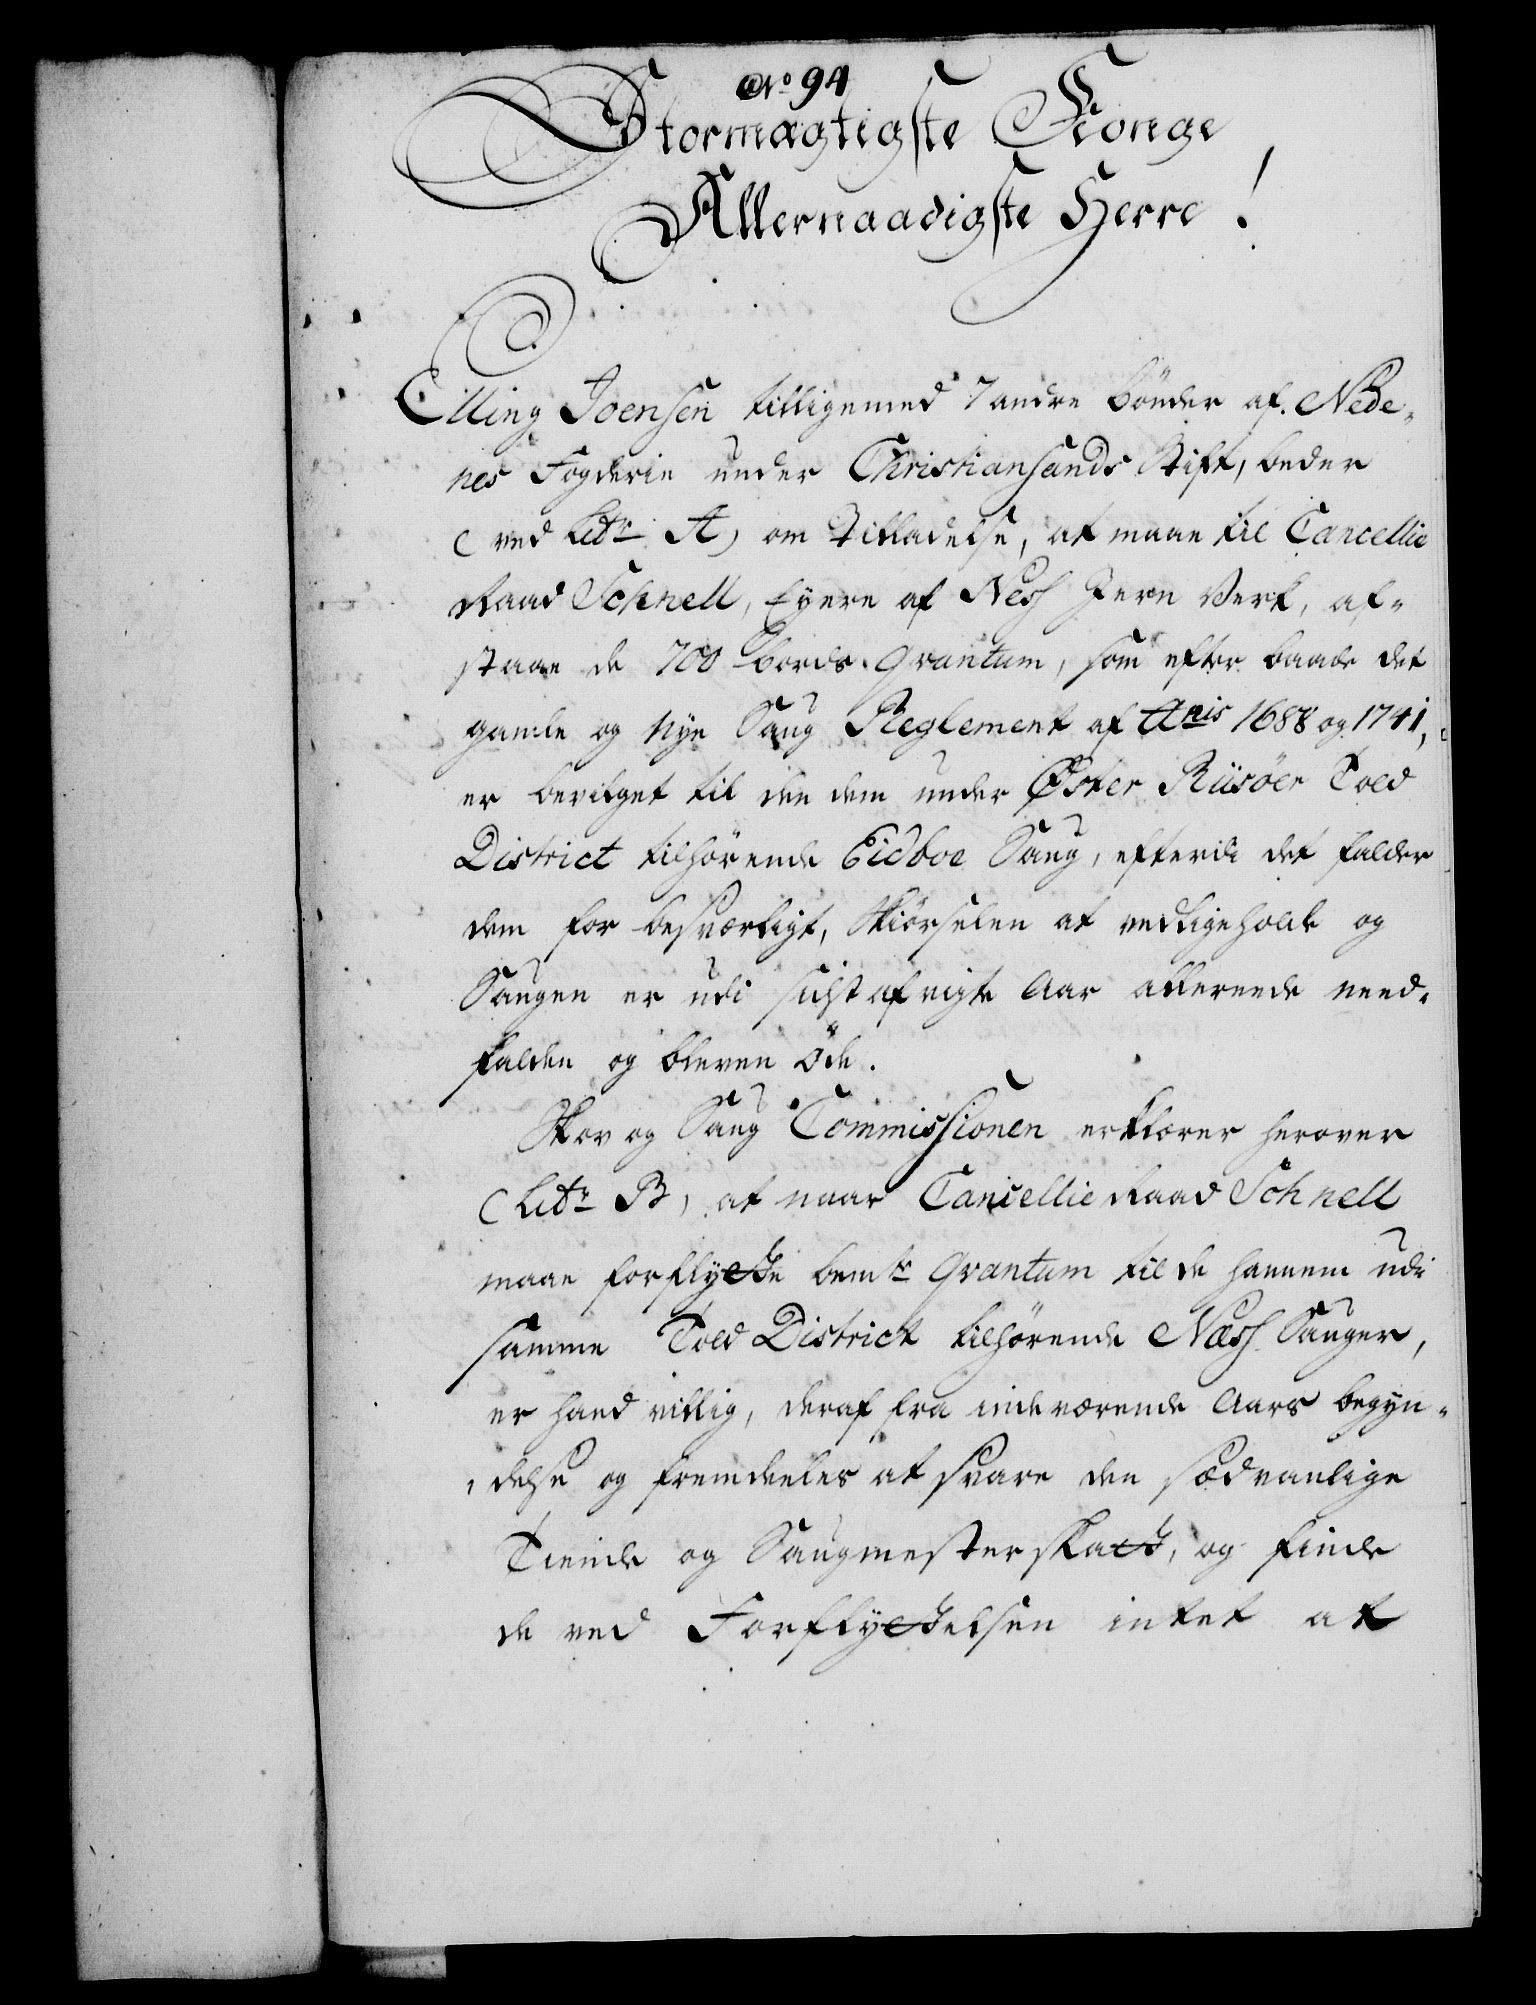 No 94
Stormægtigste Konge
Allernaadigste Herre!
Elling Joensen tilligemed 7 andre bönder af Nede-
nes Fogderie under Christiansands Stift, beder
(ved Litr A) om Tilladelse, at maae til Cancellie
Raad Schnell, Eyere af Ness Jern Verk, af-
staae de 700 bords Qvantum, som efter baade det
gamle og Nye Saug Reglement af Anis 1688 og 1741,
er bevilget til den dem under Øster Riisöer Told
District tilhörende Eidboe Saug, efterdi det falder
dem for besværligt, Kiörselen at vedligeholde og
Saugen er udi sidst afvigte Aar allerede need-
falden og bleven öde.
Skov og Saug Commissionen erklærer herover
(Litr B) at naar Cancellie Raad Schnell
maae forflytte bemte Qvantum til de hannem udi
samme Told District tilhörende Næss Sauger,
er hand villig, deraf fra indeværende Aars begyn-
delse og fremdeeles at svare den sædvanlige
Tiende og Saugmesterskatt, og finde
de ved Forflyttelsen intet at